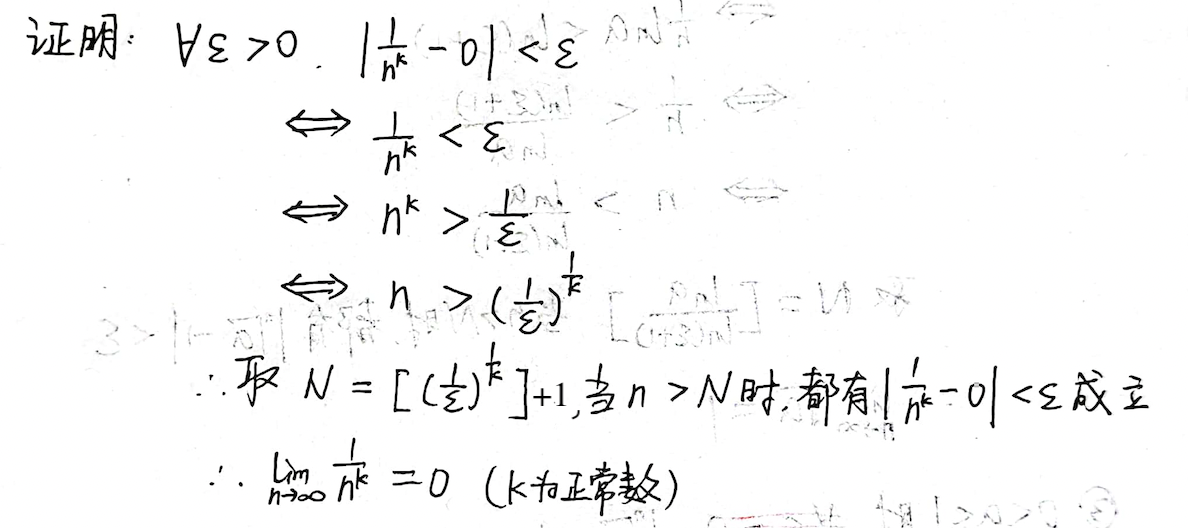 证明: ∀ε>0. |1/n^k - 0| < ε
⟺ 1/n^k < ε
⟺ n^k > 1/ε
⟺ n > (1/ε)^(1/k)
∴取 N = [(1/ε)^(1/k)]+1,当n>N时,都有|1/n^k-0|<ε成立
∴ lim n→∞ 1/n^k = 0 (k为正常数)